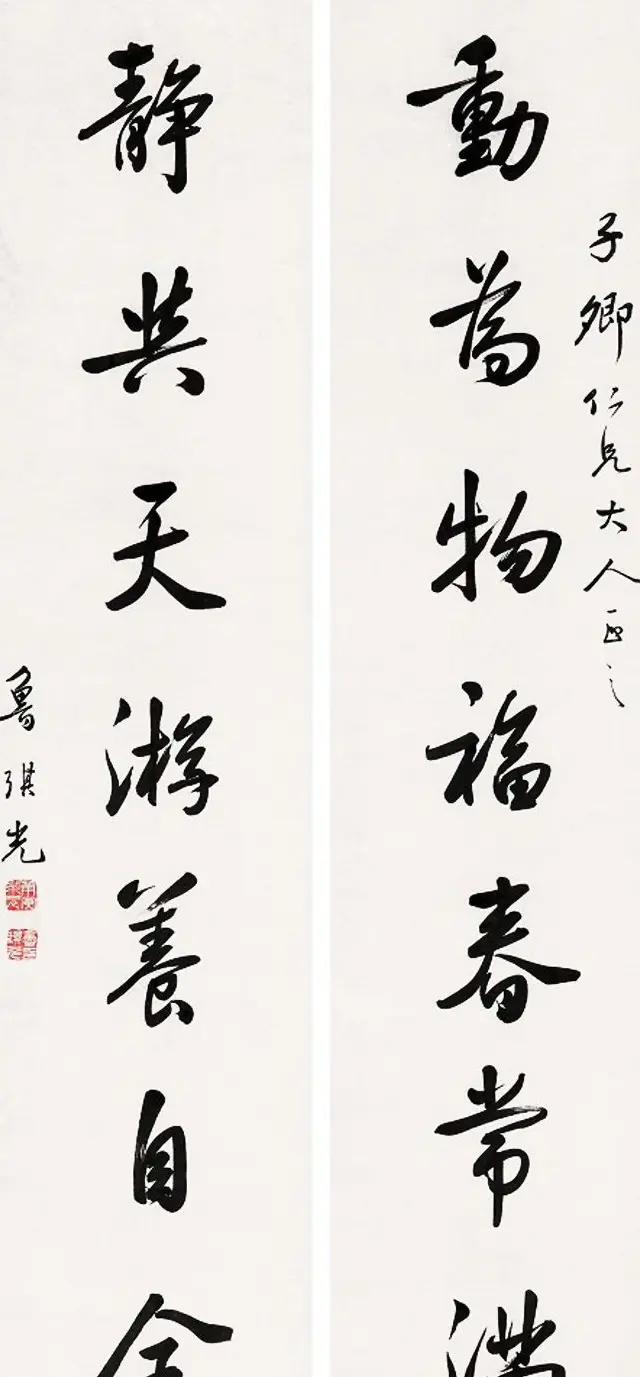 子卿仁兄大人正之
動為物福春常滿
靜與天游養自全
魯琪光